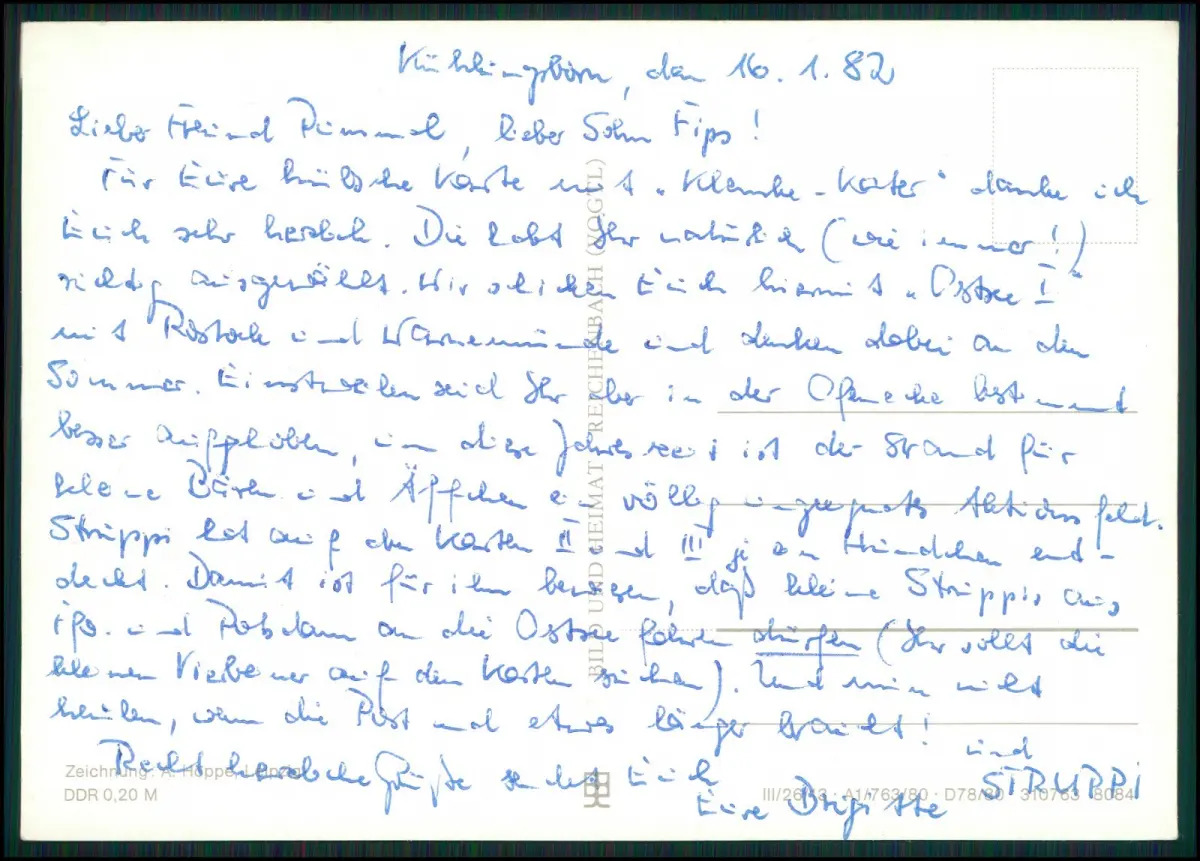 Kühlungsborn, den 16. 1. 82
Lieber Freund Pummel, lieber Sohn Fips!
Für Eure hübsche Karte mit „Klemke-Kater" danke ich
Euch sehr herzlich. Die habt Ihr natürlich (wie immer!)
richtig ausgewählt. Wir schicken Euch hiermit „Ostsee I"
mit Rostock und Warnemünde und denken dabei an den
Sommer. Einstweilen seid Ihr aber in der Ofenecke bestimmt
besser aufgehoben, um diese Jahreszeit ist der Strand für
kleine Bären und Äffchen ein völlig ungeeignetes Aktionsfeld.
Struppi hat auf den Karten II und III je ein Hündchen ent-
deckt. Damit ist für ihn bewiesen, daß kleine Struppis aus
und Potsdam an die Ostsee fahren dürfen (Ihr sollt die
kleinen Vierbeiner auf den Karten suchen). Und nun nicht
heulen, wenn die Post mal etwas länger braucht!
Recht herzliche Grüße sendet Euch
Eure Brigitte
und
STRUPPI
BILD UND HEIMAT REICHENBACH (VOGTL)
Zeichnung: A. Hoppe, Leipzig
DDR 0,20 M
A1/763/80 · D78/80 310763 8084